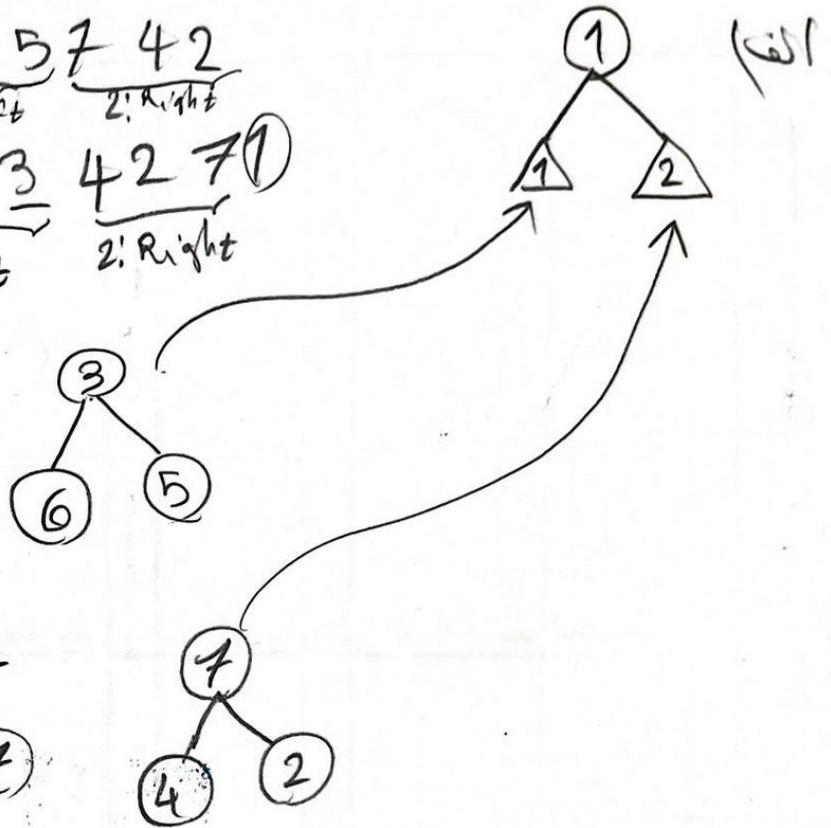 5 7 4 2
2: Right
3 4 2 7 1
2: Right
الف)
1
1 2
3
6 5
7
4 2